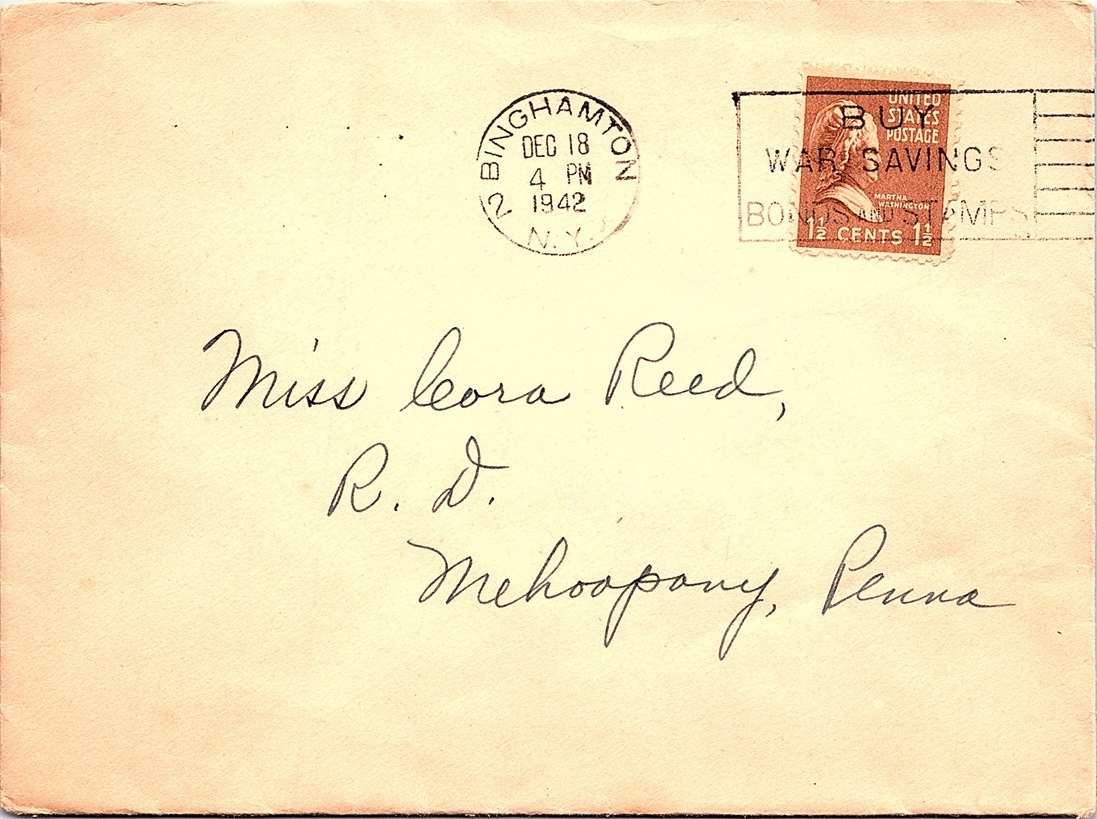 2 BINGHAMTON
DEC 18
4 PM
1942
N.Y.
BUY
WAR SAVINGS
BONDS AND STAMPS
UNITED
STATES
POSTAGE
MARTHA
WASHINGTON
1½ CENTS 1½
Miss Cora Reed,
R. D.
Mehoopany, Penna